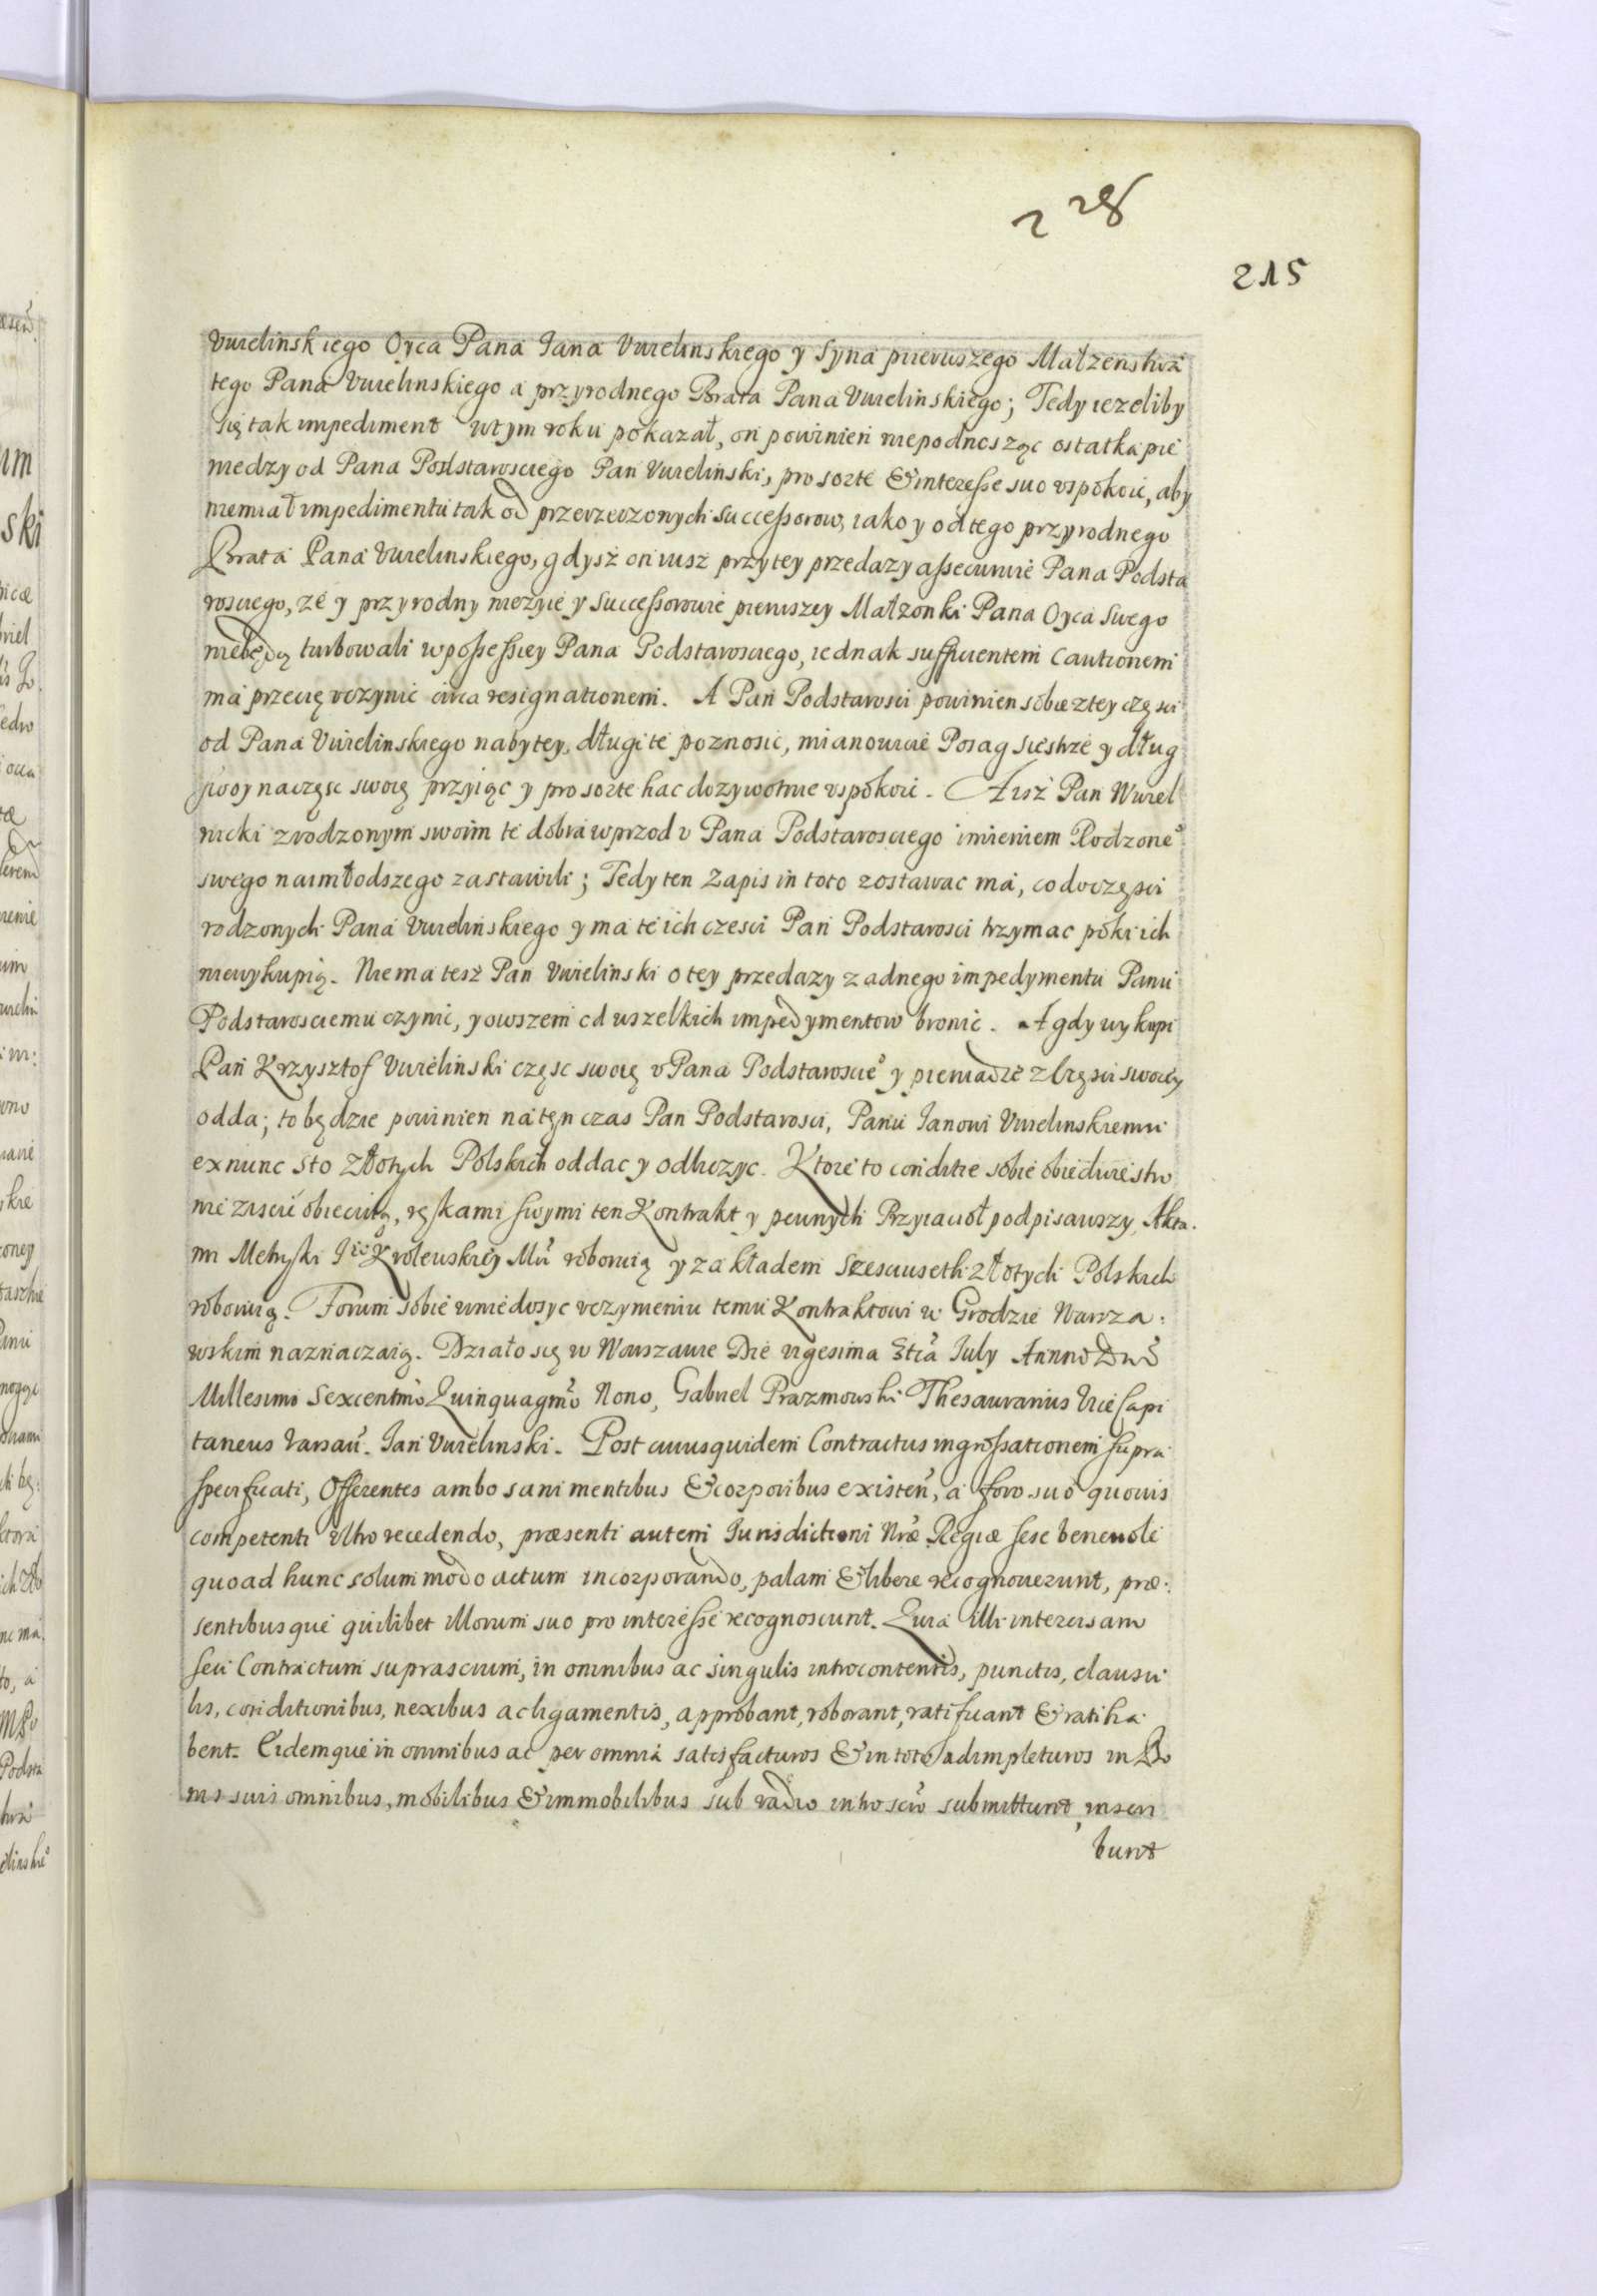 228
215
Vwielinskiego Oyca Pana Jana Vwielinskiego y Syna pierwszego Małzenstwa
tego Pana Vwielinskiego a przyrodnego Brata Pana Vwielinskiego; Tedy iezeliby
się tak impediment wtym roku pokazał, on powinien niepodnosząc ostatka pie
niedzy od Pana Podstarosciego Pan Vwielinski, pro sorte & interesse suo vspokoic, aby
niemiał impedimentu tak od przerzeczonych successorow, iako y od tego przyrodnego
Brata Pana Vwielinskiego, gdysz on iusz przytey przedazy assecuruie Pana Podsta
rosciego, ze y przyrodny niezyie y Successorowie pierwszey Małzonki Pana Oyca Swego
niebędą turbowali w possessiey Pana Podstarosciego, iednak sufficientem Cautionem
ma przecię vczynic circa resignationem. A Pan Podstarosci powinien sobie ztey częsci
od Pana Vwielinskiego nabytey, długi te poznosic, mianowicie Posag siestrze y dług
swoy naczęsc swoię przyiąc y pro sorte hac dozywotnie vspokoic. A isz Pan Wwiel
nicki zrodzonym swoim te dobra wprzod v Pana Podstarosciego imieniem Rodzone͂
swego naimłodszego zastawili; Tedy ten Zapis in toto zostawac ma, co do częsci
rodzonych Pana Vwielinskiego y ma te ich czesci Pan Podstarosci trzymac poki ich
niewykupią. Niema tesz Pan Vwielinski o tey przedazy zadnego impedymentu Panu
Podstarosciemu czynic, y owszem od wszelkich impedymentow bronic. A gdy wykupi
Pan Krzysztof Vwielinski częsc swoię v Pana Podstaroscie͂ y pieniadze zCzęsci swoiey
odda; to będzie powinien natęn czas Pan Podstarosci, Panu Janowi Vwielinskiemu
ex nunc Sto Złotych Polskich oddac y odliczyc. Ktore to conditie sobie obiedwie stro
nie ziscic obiecuią, rękami swymi ten Kontrakt y pewnych Przyiacioł podpisawszy, Akta.
mi Metryki Je͂ Krolewskiey Mci roboruią y zakładem Szesciuseth złotych Polskich
roboruią. Forum sobie wniedosyc vczynieniu temu Kontraktowi w Grodzie Warsza.
wskim naznaczaią. Działo się w Warszawie Die vigesima 3tia July Anno Dni
Millesimo Sexcentmo Quinquagmo Nono, Gabriel Prazmowski Thesaurarius Vice Capi
taneus Varsau͂. Jan Vwielinski. Post cuius quidem Contractus ingrossationem supra
specificati, Offerentes ambo sani mentibus & corporibus existen͂, a foro suo quouis
competenti Vltro recedendo, præsenti autem Jurisdictioni Nræ Regiæ sese beneuole
quoad hunc solummodo actum incorporando, palam & libere recognouerunt, præ.
sentibusque quilibet illorum suo pro interesse recognoscunt. Quia illi intercisam
seu Contractum suprascrium, in omnibus ac singulis introcontentis, punctis, clausu
lis, conditionibus, nexibus ac ligamentis, approbant, roborant, ratificant & ratiha
bent. Eidemque in omnibus ac per omnia satisfacturos & in toto adimpleturos in Bo
nis suis omnibus, mobilibus & immobilibus sub vadio introscto submittunt, inscri
bunt